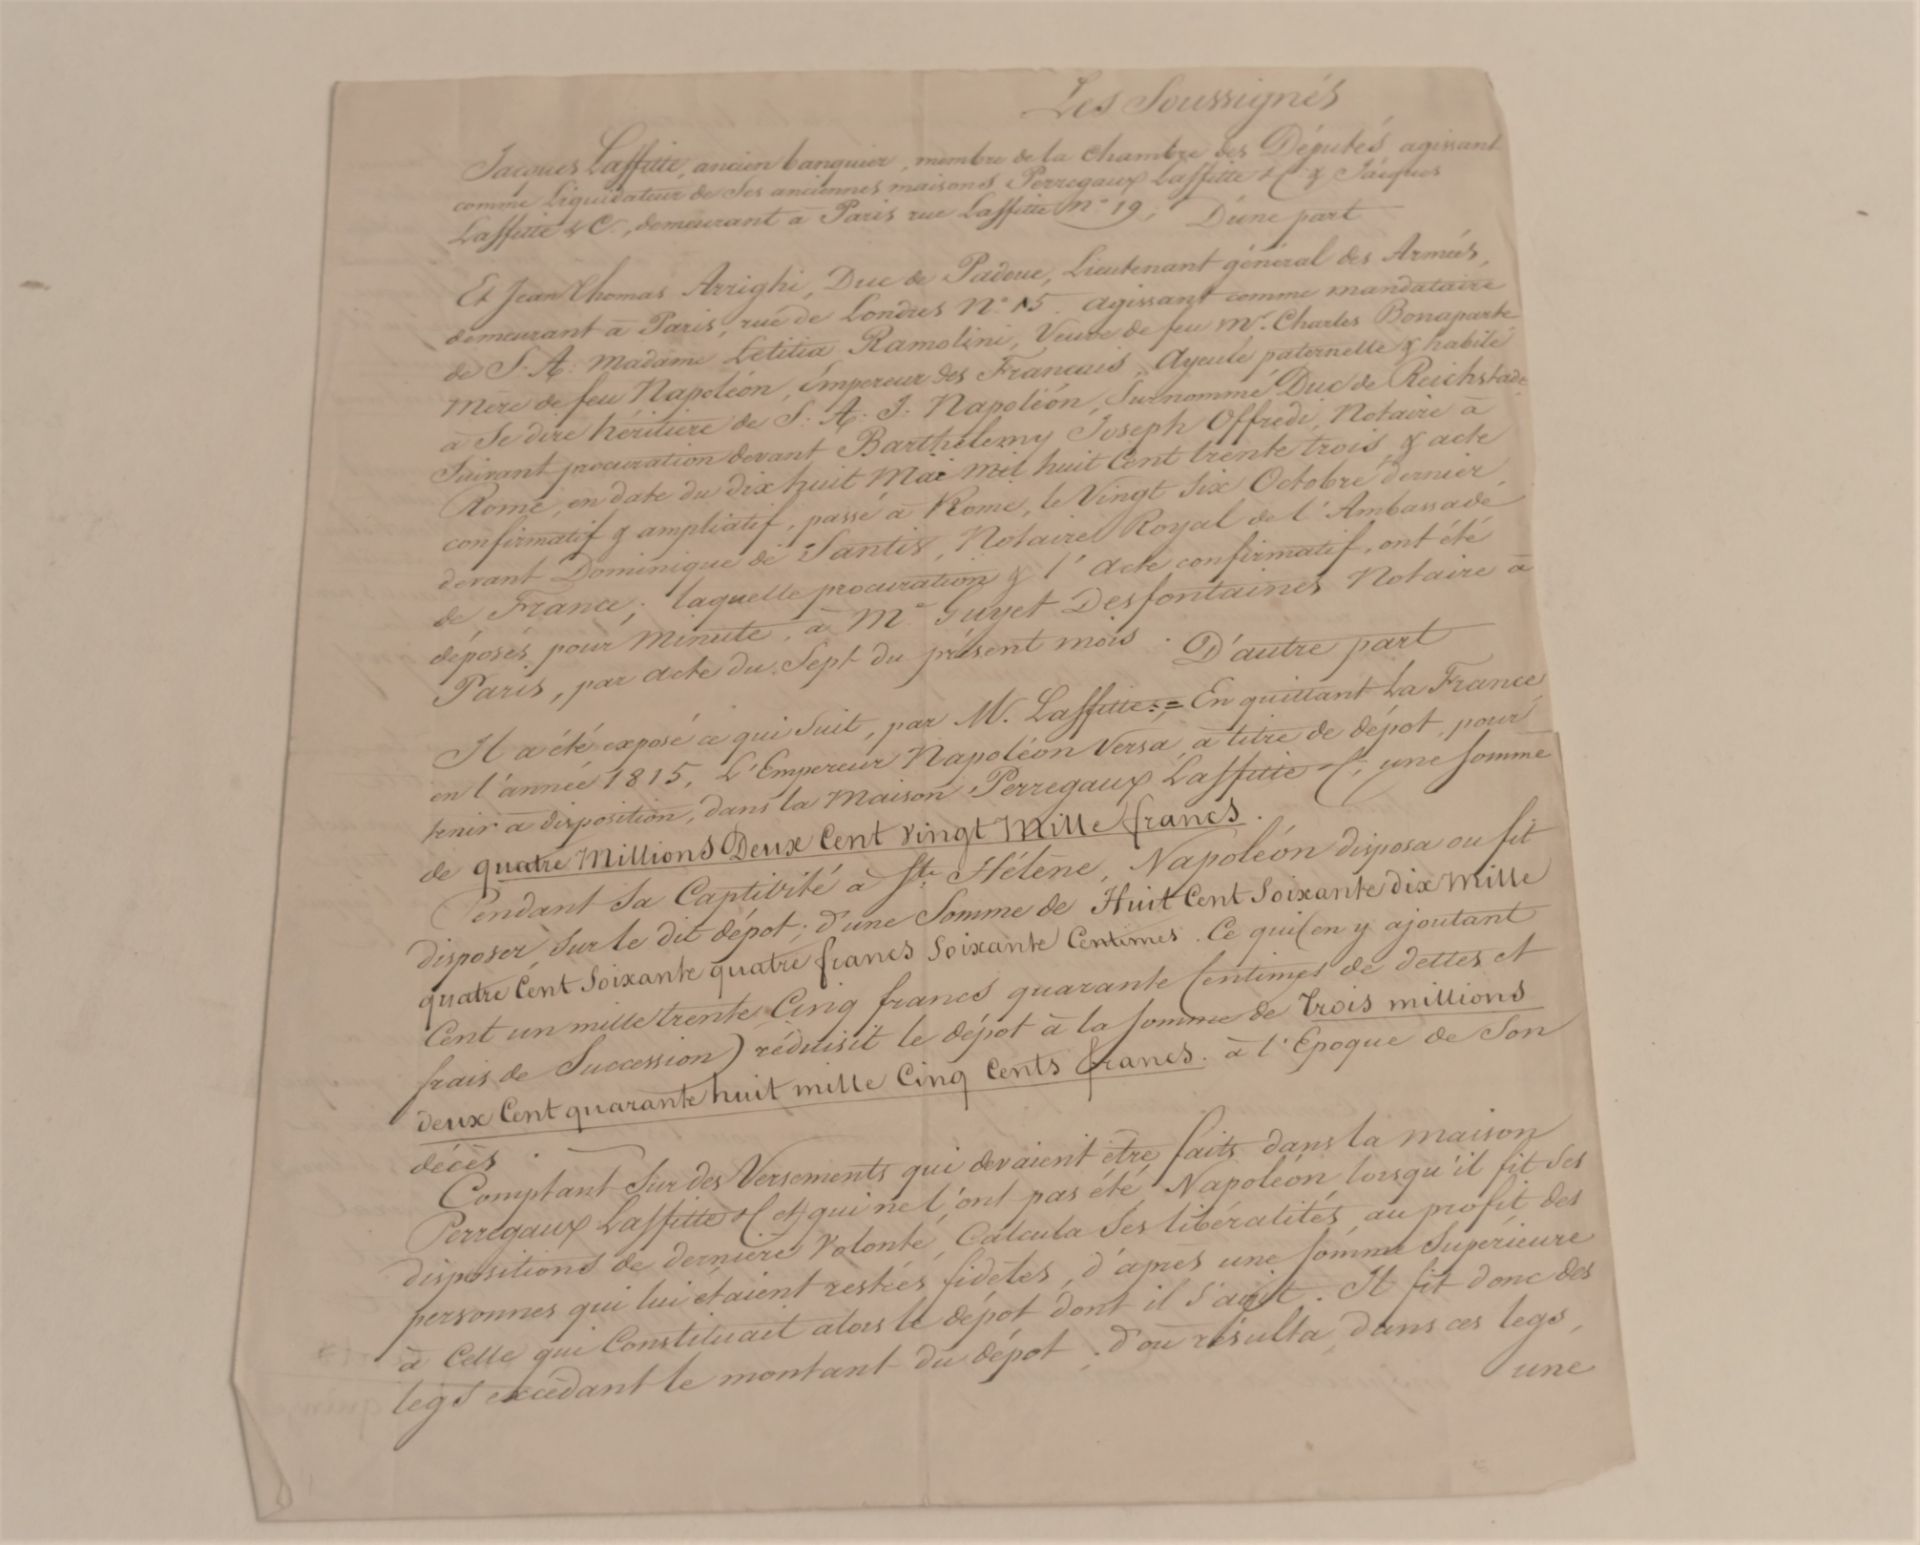 Les Soussignés
Jacques Laffitte, ancien banquier, membre de la Chambre des Députés, agissant
comme Liquidateur de Ses anciennes maisons Perregaux Laffitte & C. & Jacques
Laffitte & C., demeurant à Paris rue Laffitte N.° 19; D'une part
Et Jean Thomas Arrighi, Duc de Padoue, Lieutenant général des Armées,
demeurant à Paris, rue de Londres N.° 15. agissant comme mandataire
de S. A. Madame Letitia Ramolini, Veuve de feu Mr. Charles Bonaparte
Mère de feu Napoléon, Empereur des Francais, Ayeule paternelle & habile
à Se dire héritière de S. A. I. Napoléon, Surnommé Duc de Reichstadt
Suivant procuration devant Barthelemy Joseph Offredi, Notaire à
Rome, en date du dix huit Mai mil huit Cent trente trois, & acte
confirmatif & ampliatif, passé à Rome, le Vingt Six Octobre dernier,
devant Dominique de Santis, Notaire Royal de l'Ambassade
de France; laquelle procuration & l'acte confirmatif, ont été
déposés, pour Minute, à Me. Guyet Desfontaines Notaire à
Paris, par acte du Sept du présent mois. D'autre part
Il a été exposé ce qui Suit, par M. Laffitte := En quittant La France,
en l'année 1815, L'Empereur Napoléon Versa, à titre de dépot, pour
tenir à disposition, dans la Maison Perregaux Laffitte & C; une Somme
de quatre Millions Deux Cent Vingt Mille francs.
Pendant Sa Captivité à Ste. Hélène, Napoléon disposa ou fit
disposer, Sur le dit dépot; d'une Somme de Huit Cent Soixante dix Mille
quatre Cent Soixante quatre francs Soixante Centimes. Ce qui (en y ajoutant
Cent un mille trente Cinq francs quarante Centimes de dettes et
frais de Succession) réduisit le dépot à la Somme de Trois millions
deux Cent quarante huit mille Cinq Cents francs. à l'Epoque de Son
décès.
Comptant Sur des Versements qui devaient être faits dans la maison
Perregaux Laffitte & C et qui ne l'ont pas été, Napoléon lorsqu'il fit Ses
dispositions de dernière Volonté, Calcula Ses libéralités, au profit des
personnes qui lui étaient restées fidèles, d'après une Somme Supérieure
à Celle qui Constituait alors le dépot dont il S'agit. Il fit donc des
legs excédant le montant du dépot; d'où résulta, dans ces legs,
une